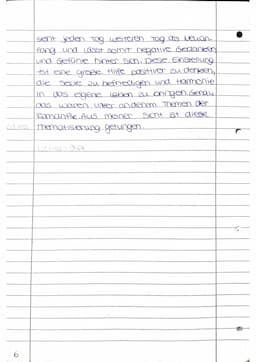 sieht jeden Tag weiteren Tag als Neuan-
fang und lässt somit negative Gedanken
und Gefühle hinter sich. Diese Einstellung
ist eine große Hilfe positiver zu denken,
die Seele zu befriedigen und Harmonie
in das eigene Leben zu bringen. Genau
das waren unter anderem Themen der
Romantik. Aus meiner Sicht ist diese
Thematisierung gelungen.
6